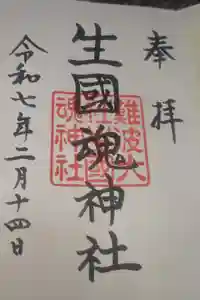 奉拝
生國魂神社
難波大
社生國
魂神社
令和七年二月十四日